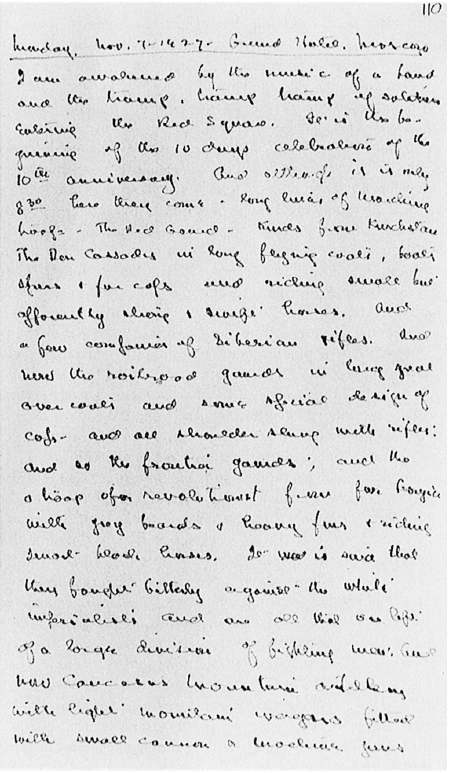 110
Monday, Nov. 7-1927- Grand Hotel. Moscow
I am awakened by the music of a band
and the tramp, tramp tramp of soldiers
entering the Red Square. It is the be-
ginning of the 10 days celebration of the
10th anniversary. And although it is only
8 30 here they come - long lines of marching
troops - The Red Guard - Kurds from Kurdistan
The Don Cossacks in long flying coats, boots
spurs & fur caps and riding small but
apparently strong & swift horses. And
a few companies of Siberian rifles. And
next the railroad guards in long great
over coats and some special design of
caps - and all shoulder slung with rifles:
and so the frontier guards; and the
a troop of revolutionist from far
with grey beards & heavy furs & riding
small black horses. It was is said that
they fought bitterly against the white
imperialists and are all that are left
of a large division of fighting men. And
now Caucasus mountain artillery
with light mountain wagons fitted
with small cannon & machine guns